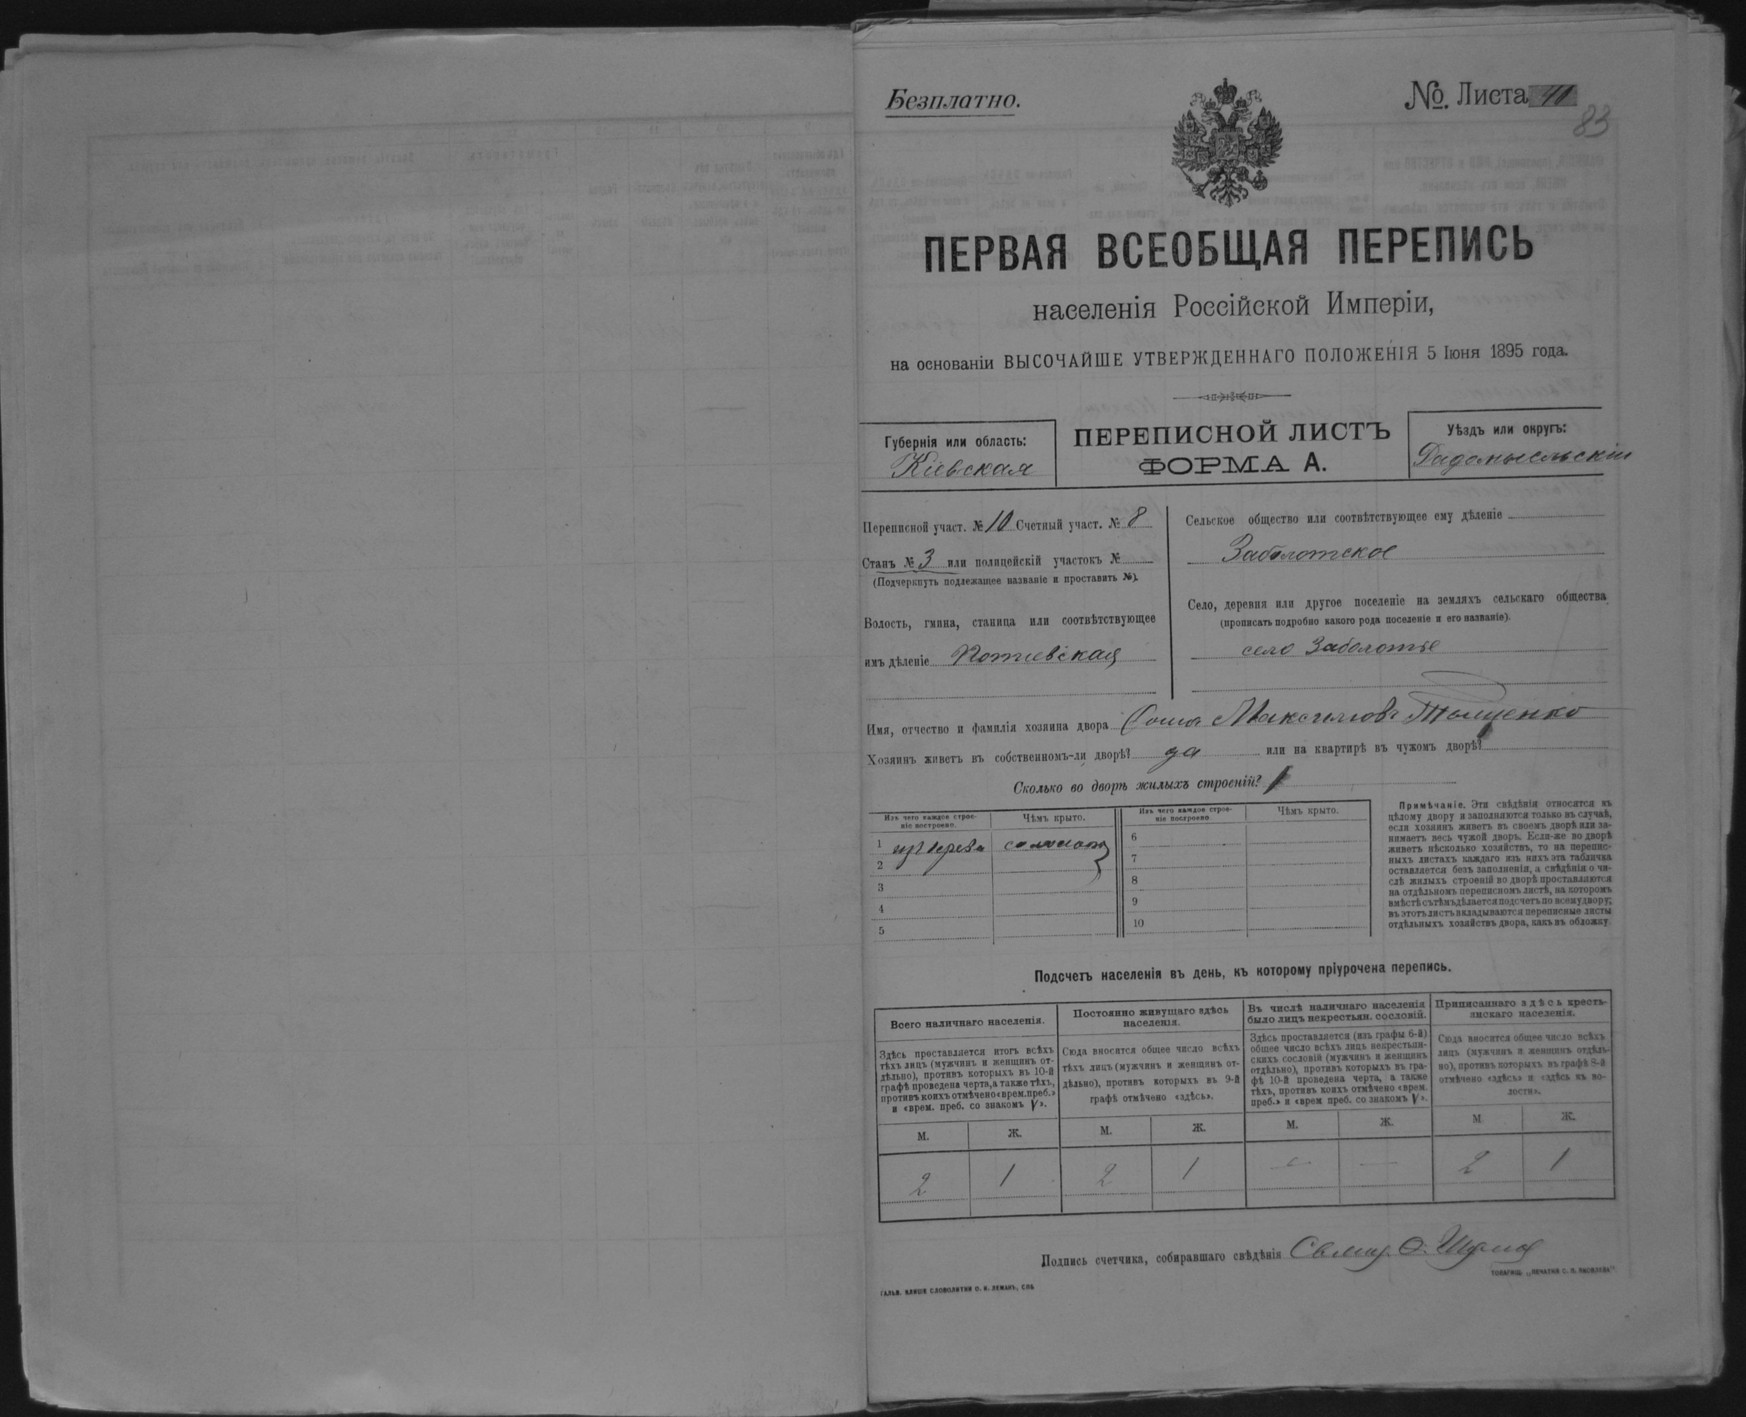 Безплатно.
№ Листа 41
83
ПЕРВАЯ ВСЕОБЩАЯ ПЕРЕПИСЬ
населенія Россійской Имперіи,
на основаніи ВЫСОЧАЙШЕ УТВЕРЖДЕННАГО ПОЛОЖЕНІЯ 5 Іюня 1895 года.
Губернія или область:
Кіевская
ПЕРЕПИСНОЙ ЛИСТЪ
ФОРМА А.
Уѣздъ или округъ:
Радомысльскій
Переписной участ. № 10 Счетный участ. № 8
Станъ № 3 или полицейскій участокъ №
(Подчеркнуть подлежащее названіе и проставить №).
Волость, гмина, станица или соотвѣтствующее
имъ дѣленіе Потіевская
Сельское общество или соотвѣтствующее ему дѣленіе
Заболотское
Село, деревня или другое поселеніе на земляхъ сельскаго общества
(прописать подробно какого рода поселеніе и его названіе).
село Заболотье
Имя, отчество и фамилія хозяина двора Фома Максимовъ Тимщенко
Хозяинъ живетъ въ собственномъ-ли дворѣ? да или на квартирѣ въ чужомъ дворѣ?
Сколько во дворѣ жилыхъ строеній? 1
Изъ чего каждое строе-
ніе построено.
Чѣмъ крыто.
Изъ чего каждое строе-
ніе построено.
Чѣмъ крыто.
1 изъ дерева соломою
2
3
4
5
6
7
8
9
10
Примѣчаніе. Эти свѣдѣнія относятся къ
цѣлому двору и заполняются только въ случаѣ,
если хозяинъ живетъ въ своемъ дворѣ или за-
нимаетъ весь чужой дворъ. Если-же во дворѣ
живетъ нѣсколько хозяйствъ, то на перепис-
ныхъ листахъ каждаго изъ нихъ эта табличка
оставляется безъ заполненія, а свѣдѣнія о чи-
слѣ жилыхъ строеній во дворѣ проставляются
на отдѣльномъ переписномъ листѣ, на которомъ
вмѣстѣ съ тѣмъ дѣлается подсчетъ по всему двору;
въ этотъ листъ вкладываются переписные листы
отдѣльныхъ хозяйствъ двора, какъ въ обложку.
Подсчетъ населенія въ день, къ которому пріурочена перепись.
Всего наличнаго населенія.
Здѣсь проставляется итогъ всѣхъ
тѣхъ лицъ (мужчинъ и женщинъ от-
дѣльно), противъ которыхъ въ 10-й
графѣ проведена черта, а также тѣхъ,
противъ коихъ отмѣчено «врем. преб.»
и «врем. преб. со знакомъ V».
Постоянно живущаго здѣсь
населенія.
Сюда вносится общее число всѣхъ
тѣхъ лицъ (мужчинъ и женщинъ от-
дѣльно), противъ которыхъ въ 9-й
графѣ отмѣчено «здѣсь».
Въ числѣ наличнаго населенія
было лицъ некрестьян. сословій.
Здѣсь проставляется (изъ графы 6-й)
общее число всѣхъ лицъ некрестьян-
скихъ сословій (мужчинъ и женщинъ
отдѣльно), противъ которыхъ въ гра-
фѣ 10-й проведена черта, а также
тѣхъ, противъ коихъ отмѣчено «врем.
преб.» и «врем преб. со знакомъ V».
Приписаннаго здѣсь кресть-
янскаго населенія.
Сюда вносится общее число всѣхъ
лицъ (мужчинъ и женщинъ отдѣль-
но), противъ которыхъ въ графѣ 8-й
отмѣчено «здѣсь» и «здѣсь въ во-
лости».
М. Ж. М. Ж. М. Ж. М. Ж.
2 1 2 1 — — 2 1
Подпись счетчика, собиравшаго свѣдѣнія
ГАЛЬВ. КЛИШЕ СЛОВОЛИТНИ О. И. ЛЕМАНЪ, СПБ
ТОВАРИЩ. „ПЕЧАТНЯ С. П. ЯКОВЛЕВА"